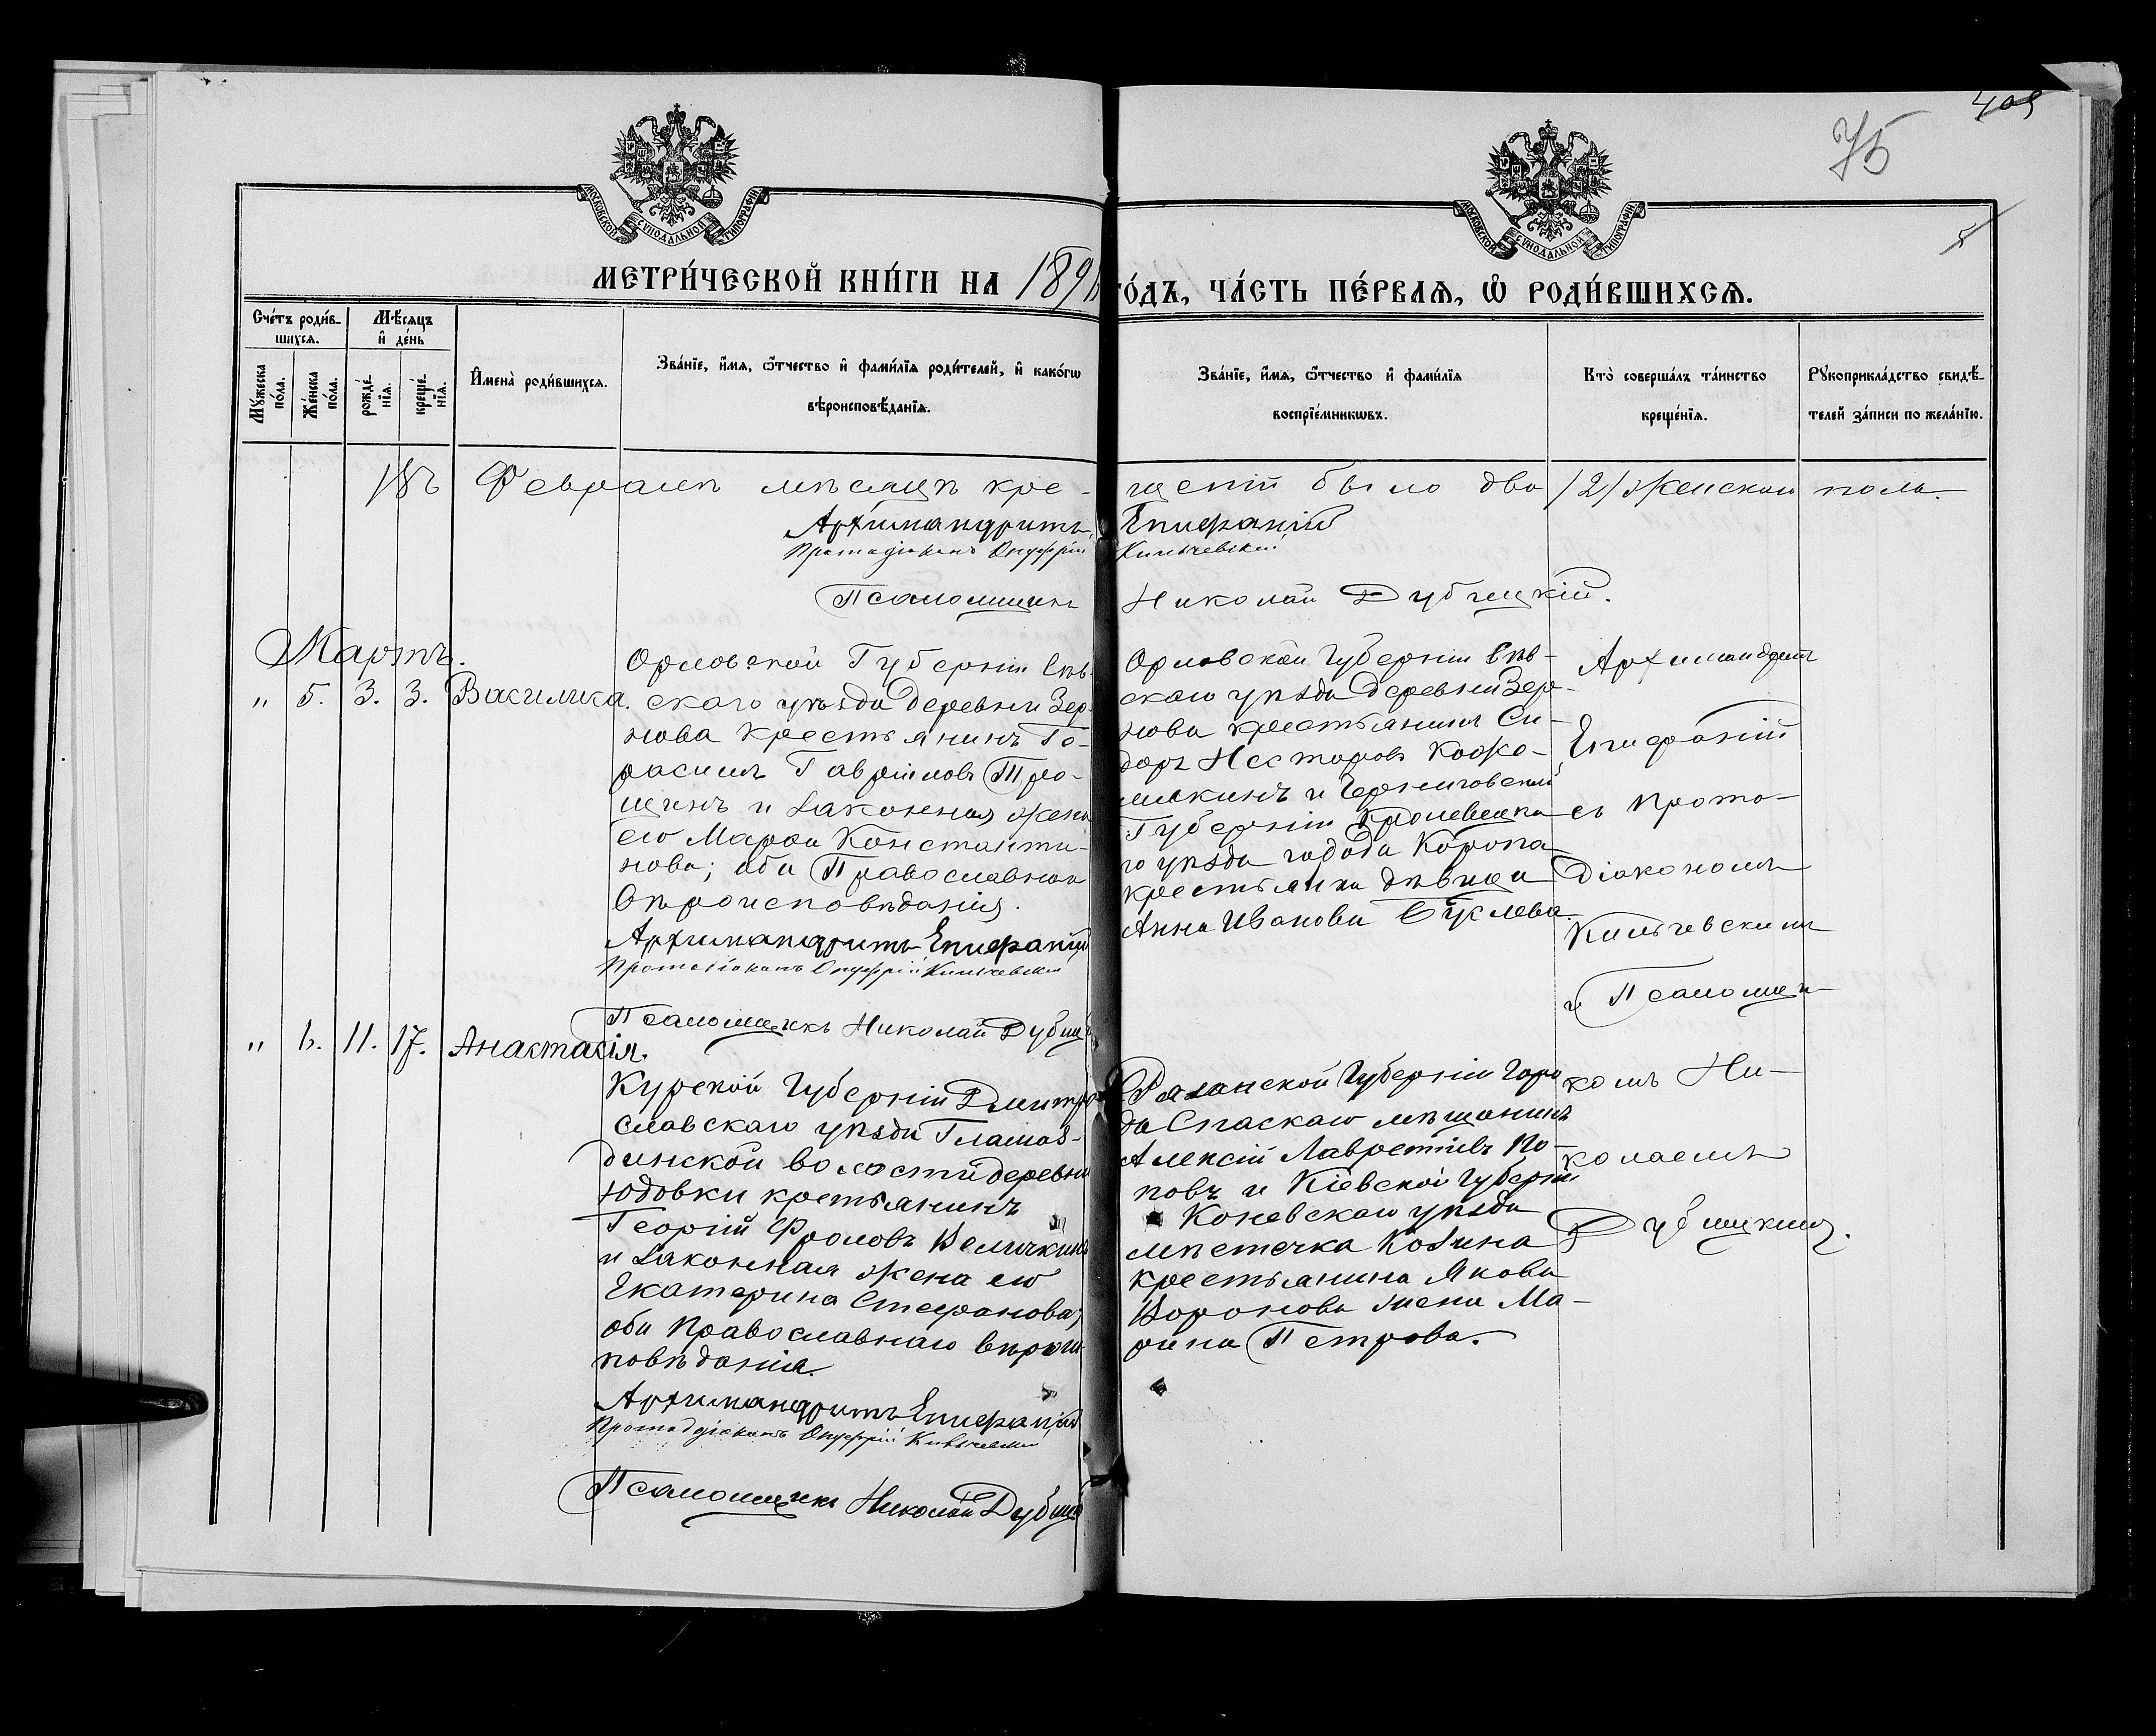 405
75
5
МОСКОВСКОЙ СѴНОДАЛЬНОЙ ТИПОГРАФІИ
МОСКОВСКОЙ СѴНОДАЛЬНОЙ ТИПОГРАФІИ
МЕТРИ́ЧЕСКОЙ КНИ́ГИ НА 189
ГО́ДЪ, ЧА́СТЬ ПЕ́РВАѦ, Ѡ҆ РОДИ́ВШИХСѦ.
Сче́тъ роди́в-
шихсѧ.
Мꙋ́жеска по́ла.
Же́нска по́ла.
Мѣ́сѧцъ
и҆ де́нь
рожде́-
нїѧ.
креще́-
нїѧ.
И҆мена̀ роди́вшихсѧ.
Зва́нїе, и҆́мѧ, ѻ҆́тчество и҆ фами́лїѧ роди́телей, и҆ како́гѡ
вѣроисповѣ́данїѧ.
Зва́нїе, и҆́мѧ, ѻ҆́тчество и҆ фами́лїѧ
воспрїе́мникѡвъ.
Кто̀ соверша́лъ та́инство
креще́нїѧ.
Рꙋкоприкла́дство свидѣ́-
телей за́писи по жела́нїю.
Въ Февралѣ мѣсяцѣ кре-
щеній было два /2/ женскаго пола.
Архимандритъ Епифаній
Протодіаконъ Онуфрій
Псаломщикъ Николай Дубицкій.
Мартъ.
" 5. 3. 3. Василиса.
Орловской Губерніи Сѣв-
скаго уѣзда Деревни Зер-
нова крестьянинъ Ге-
расимъ Гавріиловъ Тро-
шинъ и законная жена
его Марѳа Константи-
нова; оба Православнаго
Вѣроисповѣданія.
Архимандритъ Епифаній
Протодіаконъ Онуфрій
Псаломщикъ Николай
Орловской Губерніи Сѣв-
скаго уѣзда Деревни Зер-
нова крестьянинъ Си-
доръ Несторовъ
и Черниговской
Губерніи Кролевецка-
го уѣзда города Коропа
крестьянка дѣвица
Анна Иванова
Архимандритъ
Епифаній
съ Прото-
Діакономъ
и Псаломщи-
комъ Ни-
колаемъ
" 6. 11. 17. Анастасія.
Курской Губерніи Дмитро-
славскаго уѣзда
динской волости деревни
Юдовки крестьянинъ
Георгій Фроловъ Величкинъ
и законная жена его
Екатерина Стефанова,
оба Православнаго вѣроис-
повѣданія.
Архимандритъ Епифаній
Протодіаконъ Онуфрій
Псаломщикъ Николай
Рязанской Губерніи горо-
да Спаскаго мѣщанинъ
Алексій Лаврентіевъ По-
повъ и Кіевской Губерніи
Каневскаго уѣзда
мѣстечка Козина
крестьянина Якова
Воронова жена Ма-
рина Петрова.